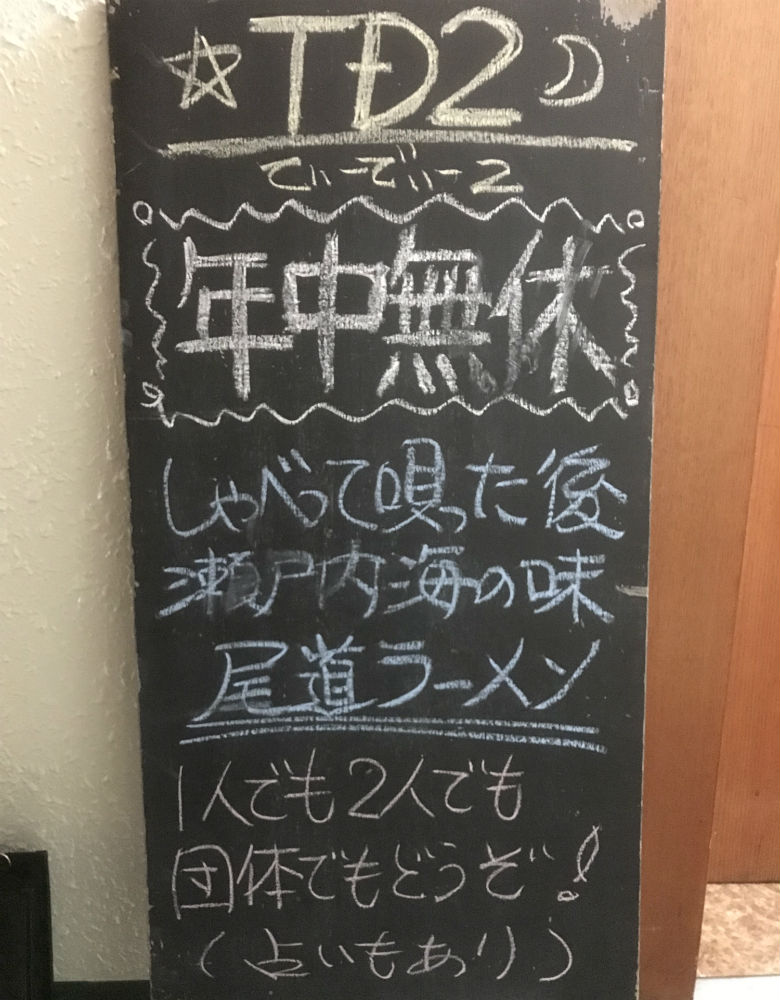 ☆TD2☽
でぃーでぃー2
年中無休
しゃべって唄った後
瀬戸内海の味
尾道ラーメン
1人でも2人でも
団体でもどうぞ!
(占いもあり)